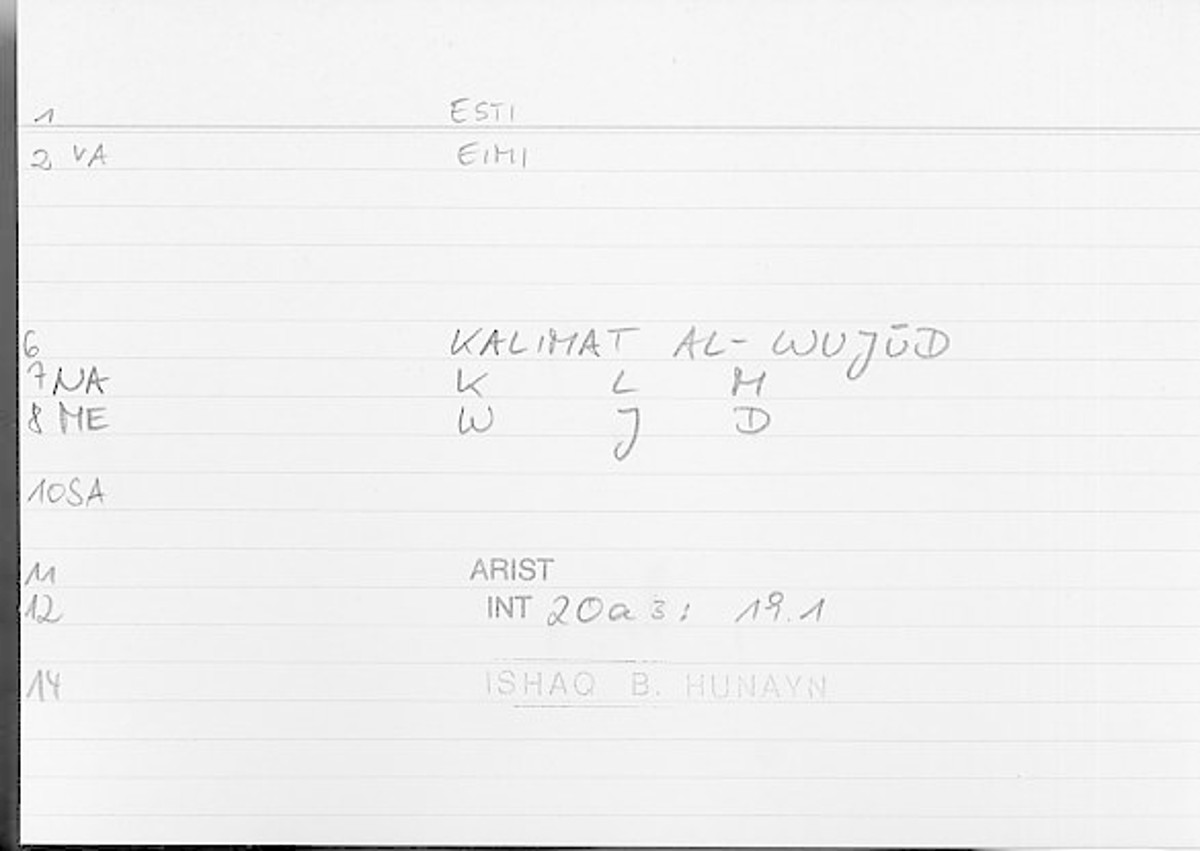 1 ESTI
2 VA EIMI
6 KALIMAT AL-WUJŪD
7 NA K L M
8 ME W J D
10 SA
11 ARIST
12 INT 20a3: 19.1
14 ISHAQ B. HUNAYN